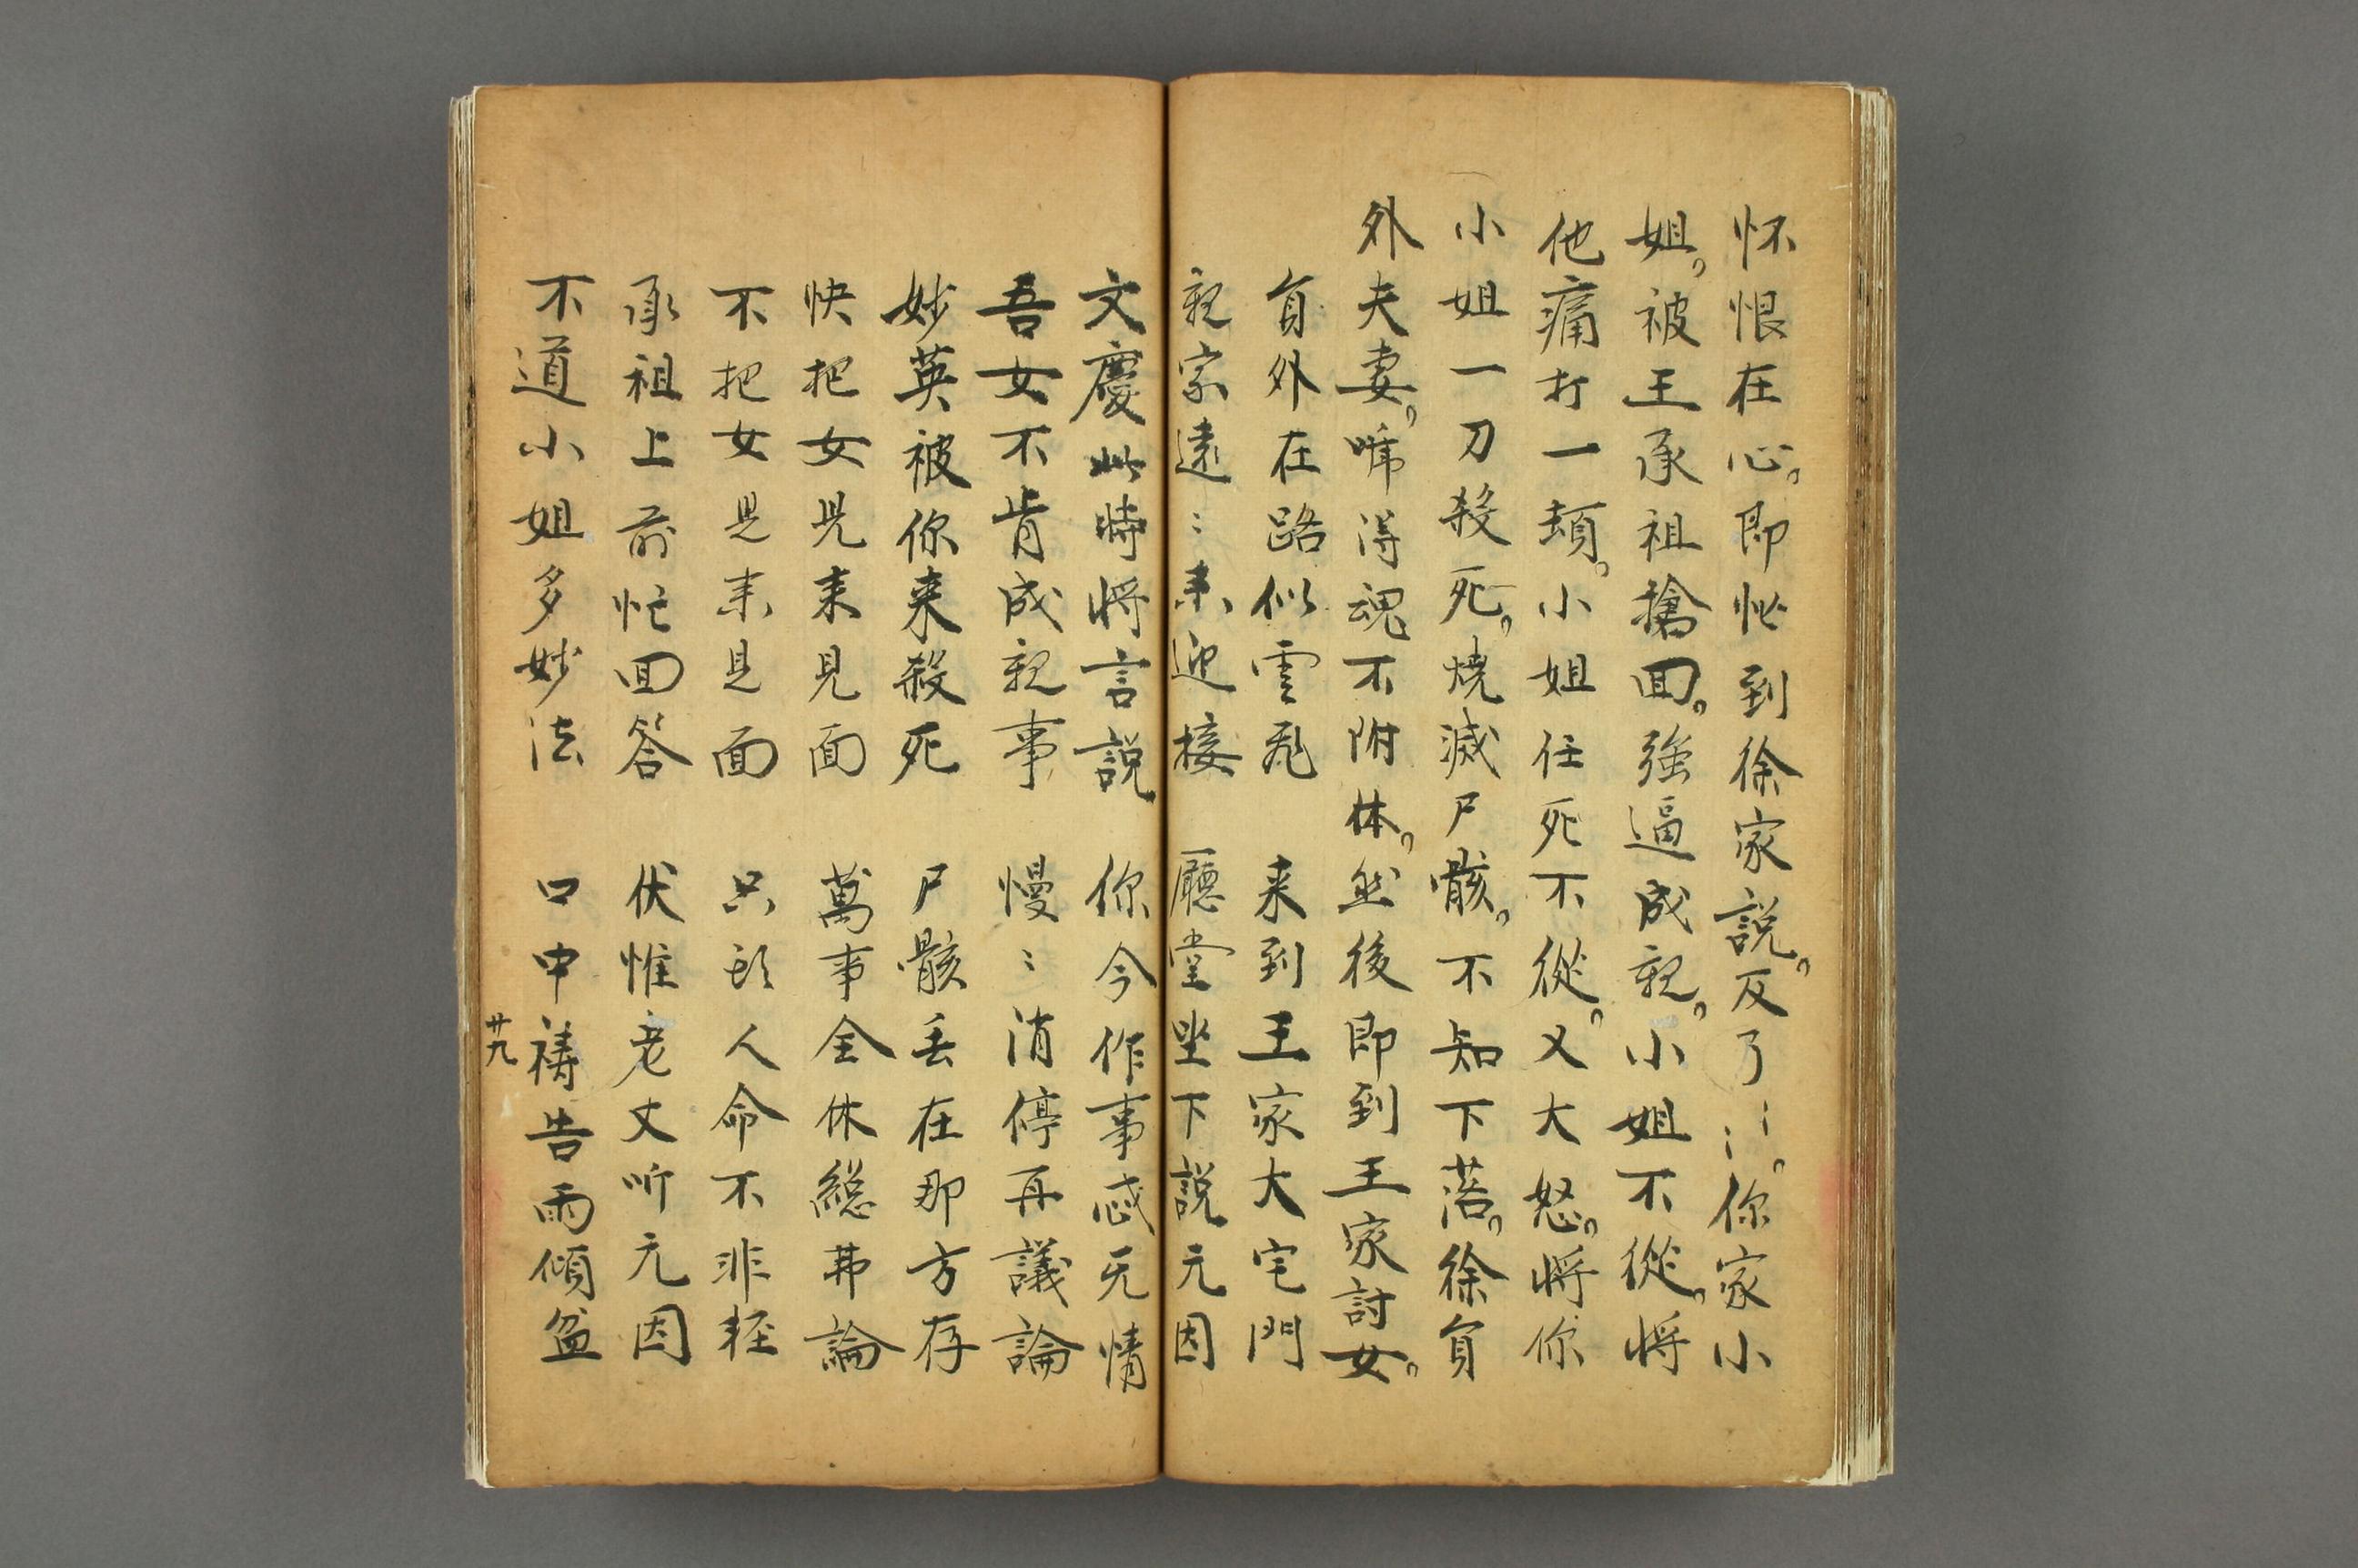 怀恨在心。即忙到徐家説。反了〻〻。你家小
姐。被王承祖擒囬。強逼成親。小姐不從。将
他痛打一頓。小姐任死不從。又大怒。将你
小姐一刀殺死。焼滅尸骸。不知下落。徐貟
外夫妻。唬得魂不附体。然後即到王家討女。
貟外在路似雲飛　来到王家大宅門
親家遠〻来迎接　廳堂坐下説元因
文慶此時将言説　你今作事忒无情
吾女不肯成親事　慢〻消停再議論
妙英被你来殺死　尸骸丢在那方存
快把女児来見面　萬事全休總弗論
不把女児来見面　只恐人命不非軽
承祖上前忙囬答　伏惟老丈听元因
不道小姐多妙法　口中禱告雨傾盆
廿九